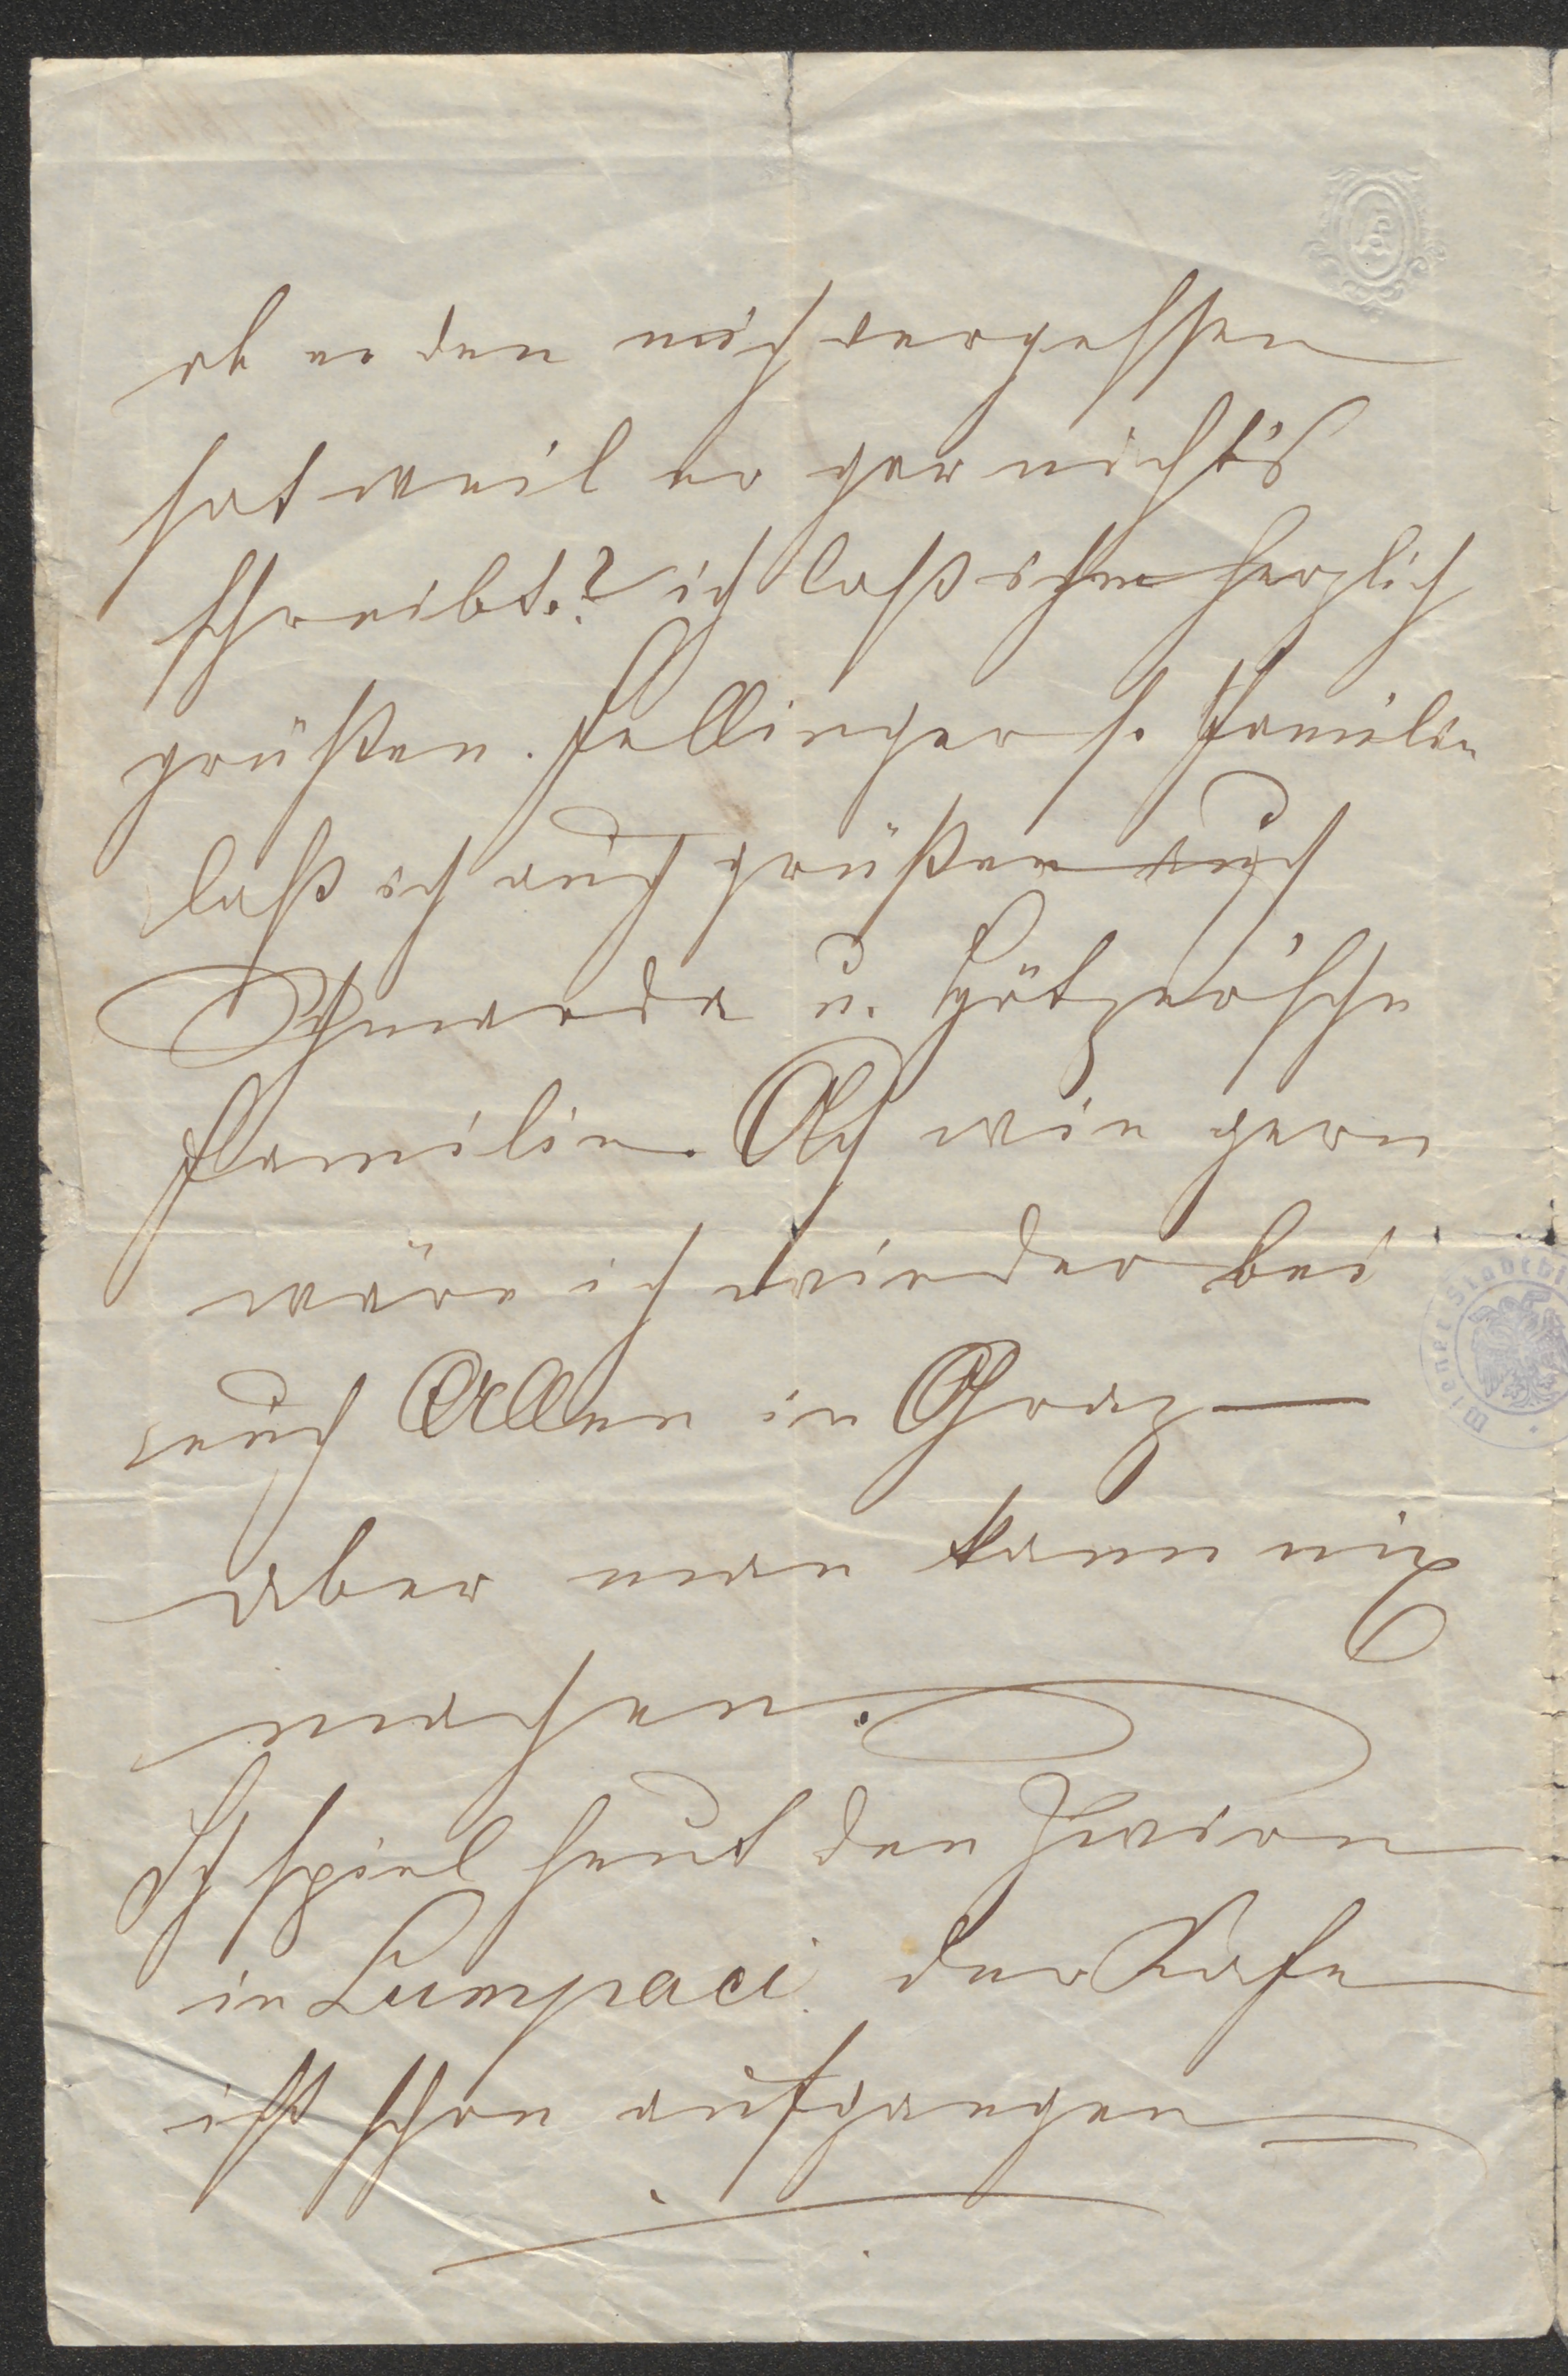 ob er den mich vergessen
hat weil er gar nicht's
schreibt.? ich laß ihm herzlich
grüßen. Fellinger s. Familie
laß ich auch grüßen auch
u. Götzer'sche
Familie. Ach wie gern
wäre ich wieder bei
euch Allen in Graz —
aber man kann nix
machen.
Ich spiel heut den Zwirn
in Lumpaci der Kafe
ist schon aufgangen
Wiener Stadtbi